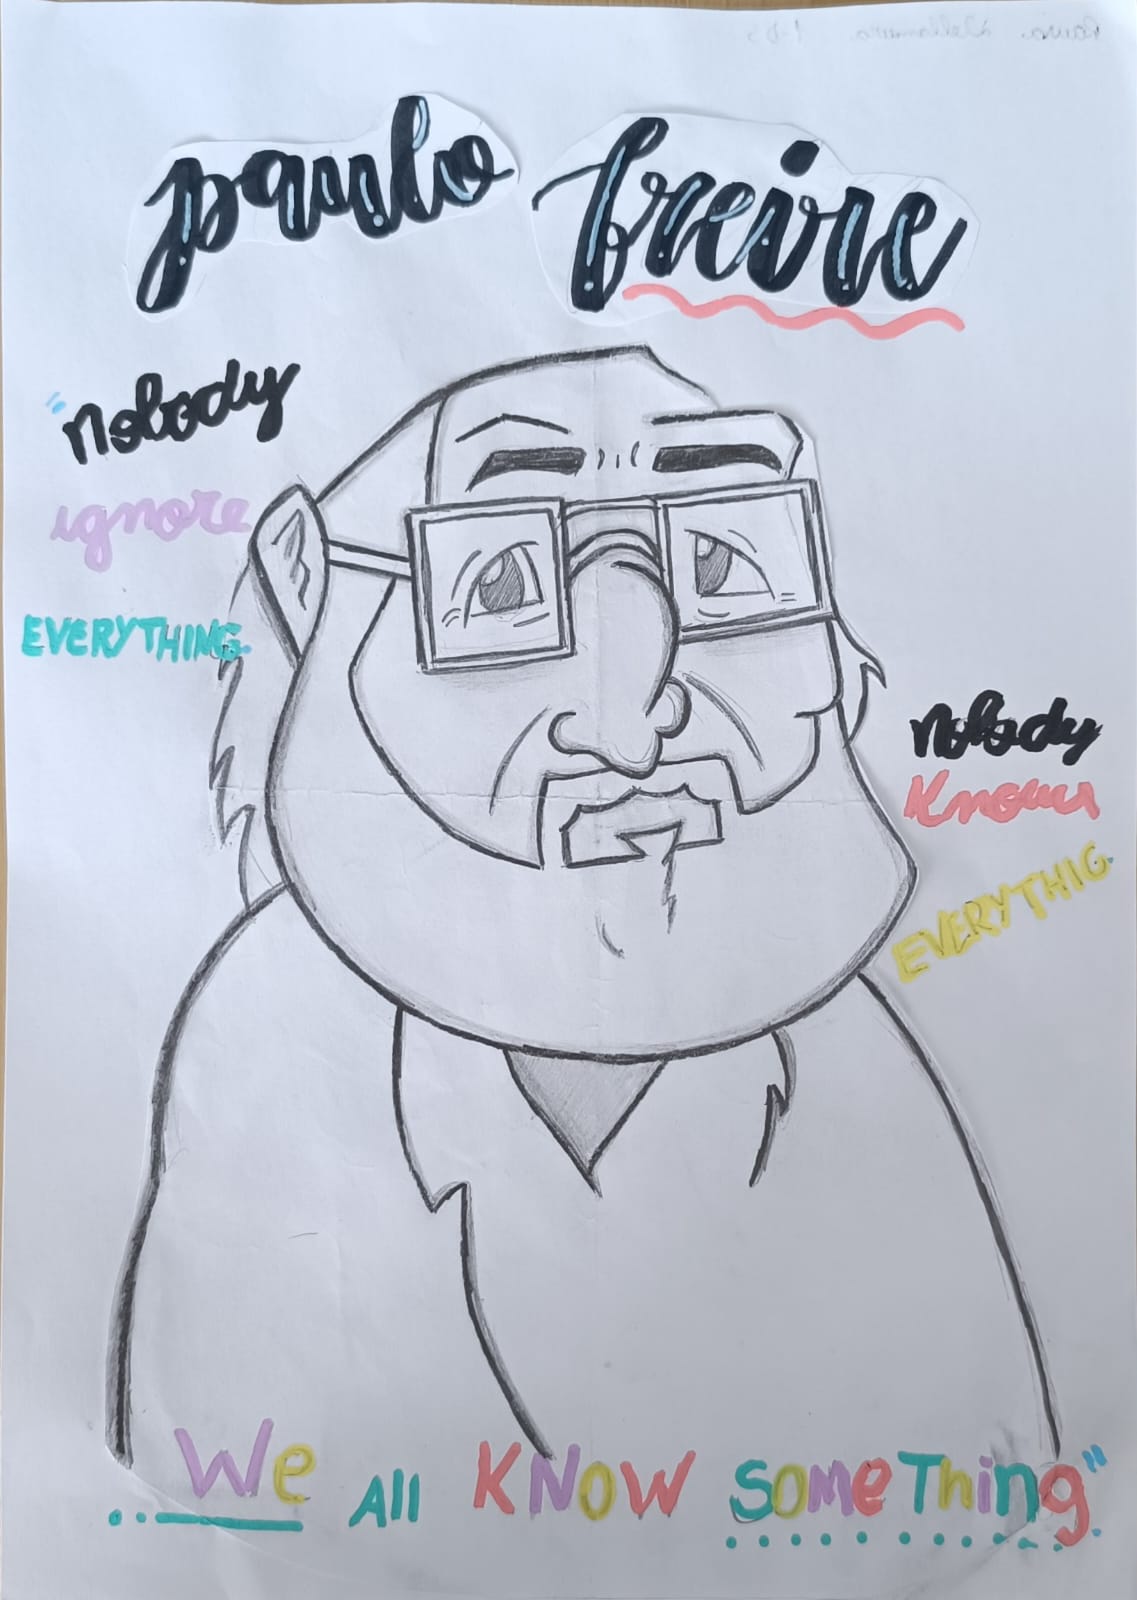 paulo freire
"nobody
ignore
EVERYTHING.
nobody
Knows
EVERYTHIG.
We All KNOW SOMeThing"